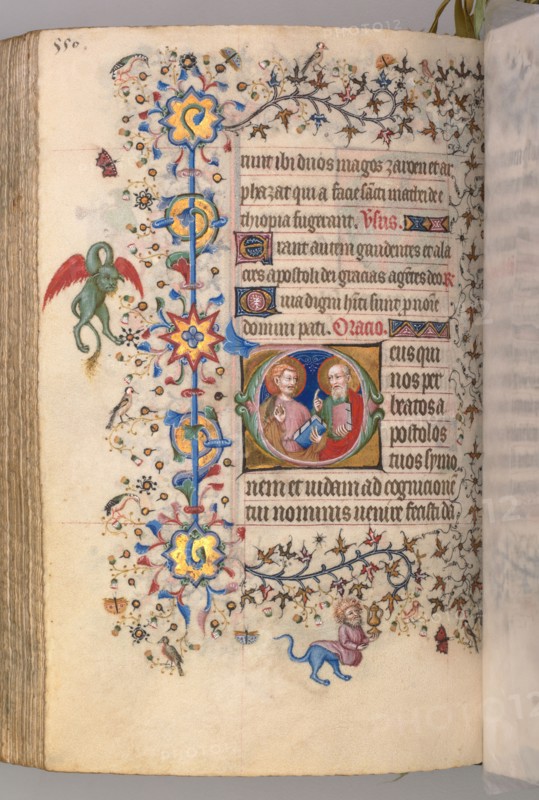 550.
runt ibi duos magos zaroen et ar
phazat qui a facie sancti mathei de e
thiopia fugerant. Vsus.
Erant autem gaudentes et ala
cres apostoli dei gracias agentes deo. R
Quia digni habiti sunt pro nomine
domini pati. Oracio.
Deus qui
nos per
beatos a
postolos
tuos symo
nem et iudam ad cognicione
tui nominis uenire fecisti da
PHOTO12
PHOTO12
PHOTO12